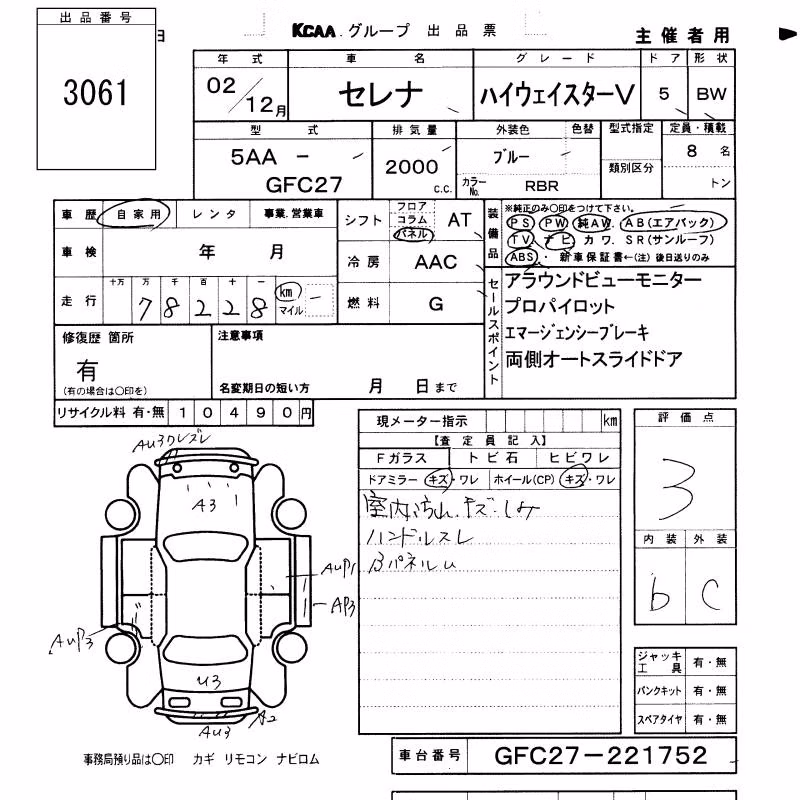 出品番号
3061
日
KCAA グループ 出品票
主催者用
年式 車名 グレード ドア 形状
02/12月 セレナ ハイウェイスターV 5 BW
型式 排気量 外装色 色替 型式指定 定員・積載
5AA －
GFC27
2000 c.c.
ブルー
カラーNo. RBR
類別区分
8 名
トン
車歴 自家用 レンタ 事業.営業車
車検 年 月
走行 十万 万 千 百 十 一
78228 km マイル －
シフト フロア コラム パネル AT
冷房 AAC
燃料 G
装備品
※純正のみ○印をつけて下さい。
PS PW 純AW. AB(エアバック)
TV ナビ カワ. SR(サンルーフ)
ABS ・ 新車保証書←(注) 後日送りのみ
セールスポイント
アラウンドビューモニター
プロパイロット
エマージェンシーブレーキ
両側オートスライドドア
修復歴 箇所
有
(有の場合は○印を)
注意事項
名変期日の短い方 月 日まで
リサイクル料 有・無 10490円
現メーター指示 km
【査定員記入】
Fガラス トビ石 ヒビワレ
ドアミラー キズ・ワレ ホイール(CP) キズ・ワレ
室内汚れ.キズ.しみ
ハンドルスレ
Bパネルu
評価点
3
内装 外装
b C
ジャッキ工具 有・無
パンクキット 有・無
スペアタイヤ 有・無
AU3ワレズレ
A3
AUP1
AP3
AUP3
U3
A2
AU3
事務局預り品は○印 カギ リモコン ナビロム
車台番号 GFC27－221752